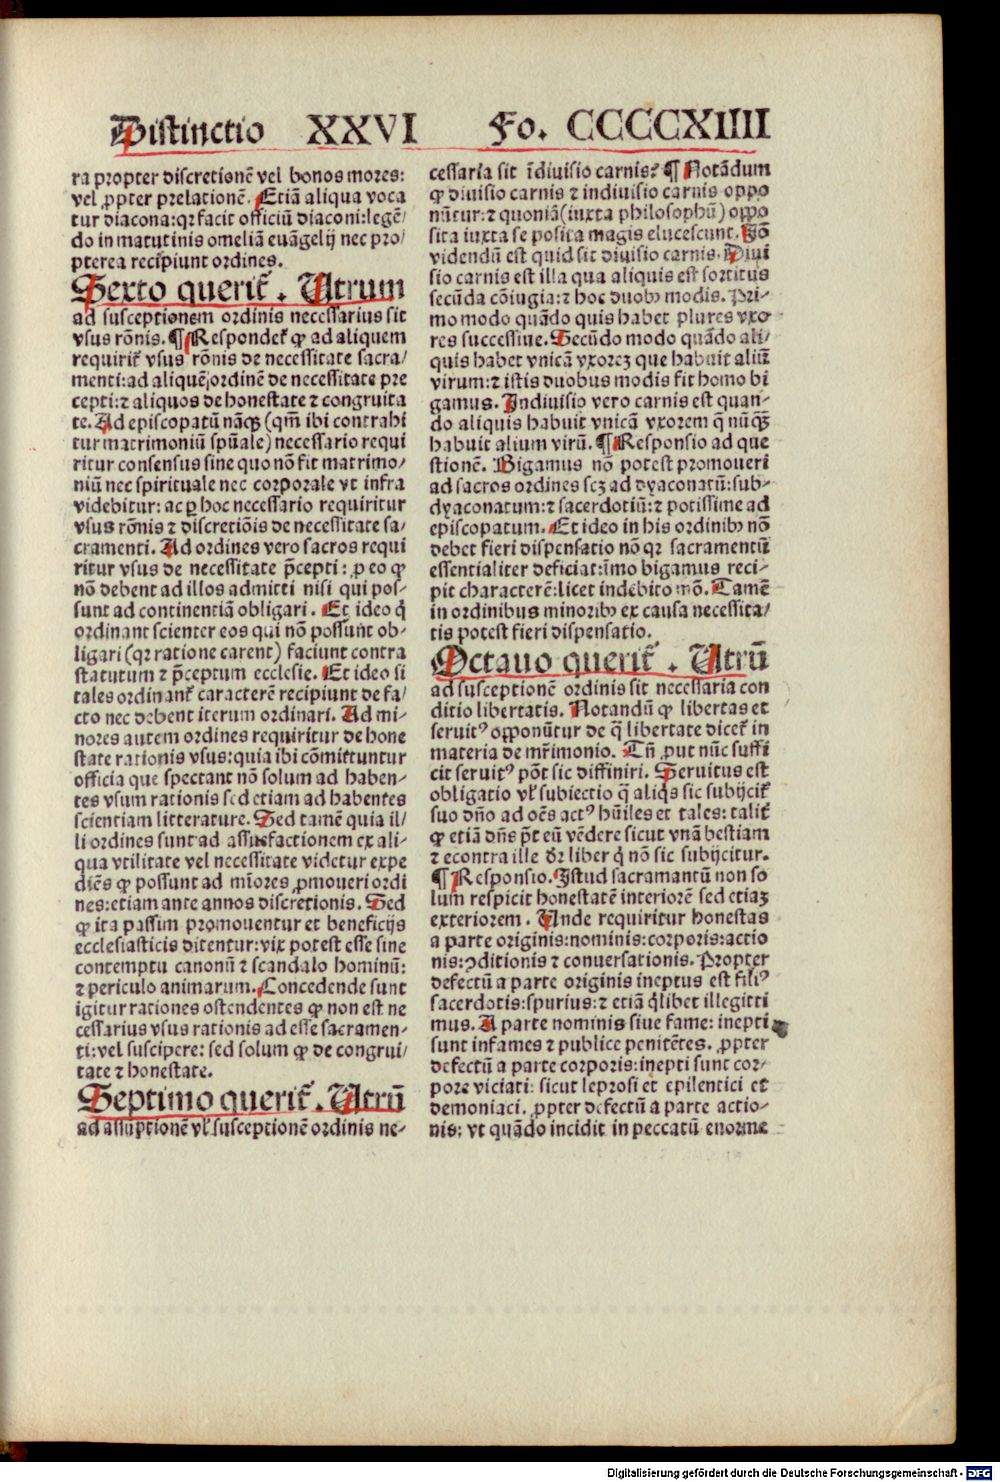 Distinctio XXVI Fo. CCCCCXIIII
ra propter discretionē vel bonos mores:
vel ꝓpter prelationē. Etiā aliqua voca
tur diacona: qꝛ facit officiū diaconi: legē/
do in matutinis omeliā euāgelij nec pro/
pterea recipiunt ordines.
Sexto querit̉. Utrum
ad susceptionem ordinis necessarius sit
vsus rōnis. ¶ Respondet̉ ꝙ ad aliquem
requirit̉ vsus rōnis de necessitate sacra/
menti: ad aliquē ordinē de necessitate pre
cepti: ⁊ aliquos de honestate ⁊ congruita
te. Ad episcopatū nāqꝫ (qm̄ ibi contrahi
tur matrimoniū spūale) necessario requi
ritur consensus sine quo nō fit matrimo/
niū nec spirituale nec corporale vt infra
videbitur: ac ꝑ hoc necessario requiritur
vsus rōnis ⁊ discretiōis de necessitate sa/
cramenti. Ad ordines vero sacros requi
ritur vsus de necessitate p̄cepti: ꝓ eo ꝙ
nō debent ad illos admitti nisi qui pos-
sunt ad continentiā obligari. Et ideo q̇
ordinant scienter eos qui nō possunt ob-
ligari (qꝛ ratione carent) faciunt contra
statutum ⁊ p̄ceptum ecclesie. Et ideo si
tales ordinant̉ caracterē recipiunt de fa/
cto nec debent iterum ordinari. Ad mi-
nores autem ordines requiritur de hone
state rationis vsus: quia ibi cōmittuntur
officia que spectant nō solum ad haben-
tes vsum rationis sed etiam ad habentes
scientiam litterature. Sed tamē quia il/
li ordines sunt ad assuefactionem ex ali-
qua vtilitate vel necessitate videtur expe
diēs ꝙ possunt ad mīores ꝓmoueri ordi
nes: etiam ante annos discretionis. Sed
ꝙ ita passim promouentur et beneficijs
ecclesiasticis ditentur: vix potest esse sine
contemptu canonū ⁊ scandalo hominū:
⁊ periculo animarum. Concedende sunt
igitur rationes ostendentes ꝙ non est ne
cessarius vsus rationis ad esse sacramen-
ti: vel suscipere: sed solum ꝙ de congrui/
tate ⁊ honestate.
Septimo querit̉. Utrū
ad assūptionē vl̓ susceptionē ordinis ne-
cessaria sit īdiuisio carnis? ¶ Notādum
ꝙ diuisio carnis ⁊ indiuisio carnis oppo
nūtur: ⁊ quoniā (iuxta philosophū) oppo
sita iuxta se posita magis elucescunt. Iō
videndū est quid sit diuisio carnis. Diui
sio carnis est illa qua aliquis est sortitus
secūda cōiugia: ⁊ hoc duobꝫ modis. Pri-
mo modo quādo quis habet plures vxo-
res successiue. Secūdo modo quādo ali/
quis habet vnicā vxoreꝫ que habuit aliū
virum: ⁊ istis duobus modis fit homo bi
gamus. Indiuisio vero carnis est quan-
do aliquis habuit vnicā vxorem q̄ nūqꝫ
habuit alium virū. ¶ Responsio ad que
stionē. Bigamus nō potest promoueri
ad sacros ordines scꝫ ad dyaconatū: sub-
dyaconatum: ⁊ sacerdotiū: ⁊ potissime ad
episcopatum. Et ideo in his ordinibꝫ nō
debet fieri dispensatio nō qꝛ sacramentū
essentialiter deficiat: īmo bigamus reci-
pit characterē: licet indebito mō. Tamē
in ordinibus minoribꝫ ex causa necessita/
tis potest fieri dispensatio.
Octauo querit̉. Utrū
ad susceptionē ordinis sit necessaria con
ditio libertatis. Notandū ꝙ libertas et
seruitꝰ opponūtur de q̄ libertate dicet̉ in
materia de mr̄imonio. Tn̄ ꝓut nūc suffi
cit seruitꝰ pōt sic diffiniri. Seruitus est
obligatio vl̓ subiectio q̄ aliq̇s sic subijcit̉
suo dn̄o ad oēs actꝰ hūiles et tales: talit̉
ꝙ etiā dn̄s pōt eū vēdere sicut vnā bestiam
⁊ econtra ille dr̄ liber q̇ nō sic subijcitur.
¶ Responsio. Istud sacramantū non so
lum respicit honestatē interiorē sed etiaꝫ
exteriorem. Unde requiritur honestas
a parte originis: nominis: corporis: actio
nis: ꝯditionis ⁊ conuersationis. Propter
defectū a parte originis ineptus est filiꝰ
sacerdotis: spurius: ⁊ etiā q̇libet illegitti
mus. A parte nominis siue fame: inepti
sunt infames ⁊ publice penitētes. ꝓpter
defectū a parte corporis: inepti sunt cor/
pore viciati: sicut leprosi et epilentici et
demoniaci. ꝓpter defectū a parte actio/
nis: vt quādo incidit in peccatū enorme
Digitalisierung gefördert durch die Deutsche Forschungsgemeinschaft - DFG